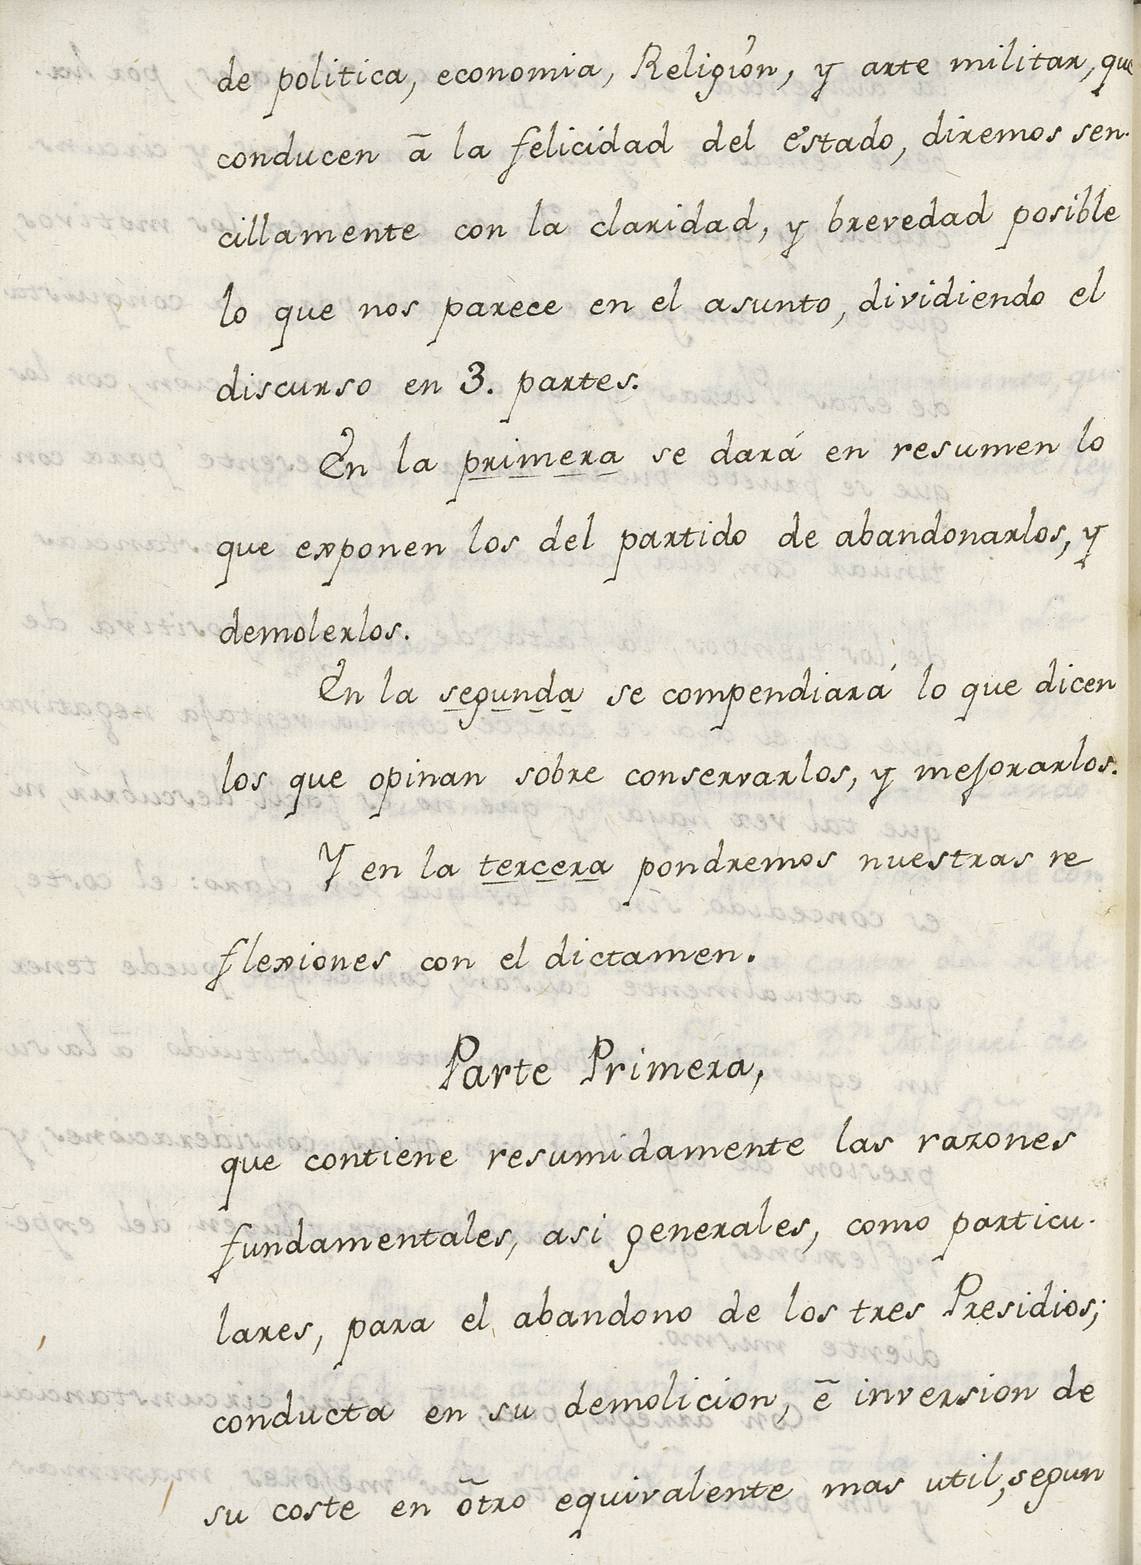 de politica, economia, Religion, y arte militar, que
conducen ā la felicidad del estado, diremos sen-
cillamente con la claridad, y brevedad posible
lo que nos parece en el asunto, dividiendo el
discurso en 3. partes.
En la primera se dará en resumen lo
que exponen los del partido de abandonarlos, y
demolerlos.
En la segunda se compendiará lo que dicen
los que opinan sobre conservarlos, y mejorarlos.
Y en la tercera pondremos nuestras re
flexiones con el dictamen.
Parte Primera,
que contiene resumidamente las razones
fundamentales, asi generales, como particu-
lares, para el abandono de los tres Presidios;
conducta en su demolicion, ē inversion de
su coste en ōtro equivalente mas util, segun